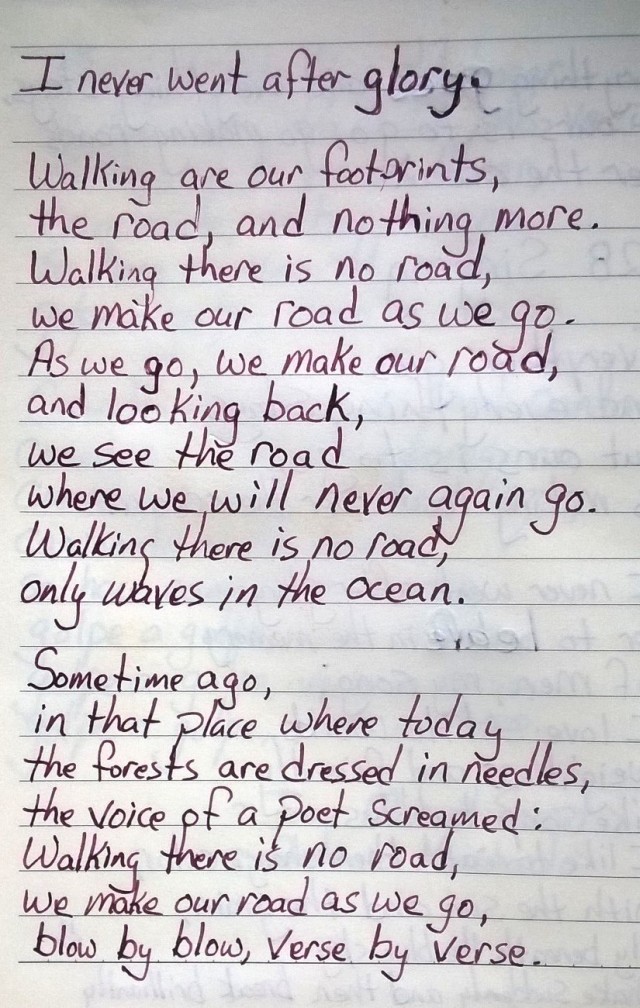 I never went after glory.
Walking are our footprints,
the road, and nothing more.
Walking there is no road,
we make our road as we go.
As we go, we make our road,
and looking back,
we see the road
where we will never again go.
Walking there is no road,
only waves in the ocean.
Sometime ago,
in that place where today
the forests are dressed in needles,
the voice of a poet screamed:
Walking there is no road,
we make our road as we go,
blow by blow, verse by verse.